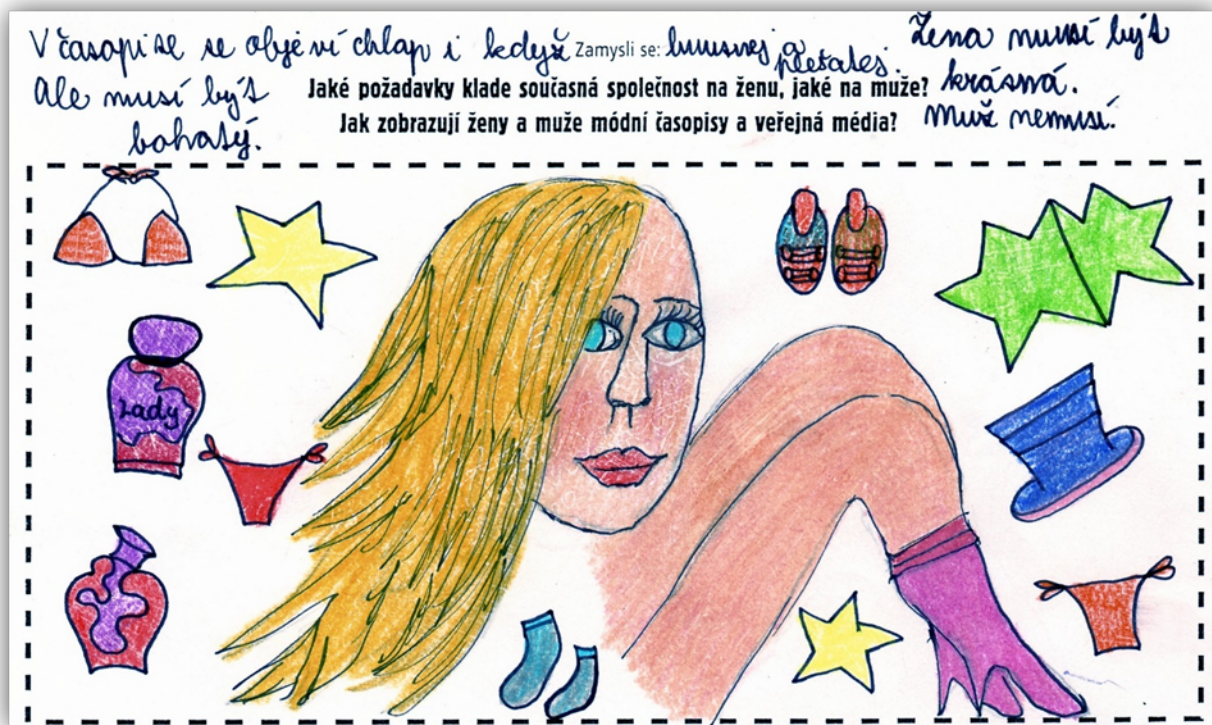 V časopise se objeví chlap i když
Ale musí být
bohatý.
Zamysli se:
Jaké požadavky klade současná společnost na ženu, jaké na muže?
Jak zobrazují ženy a muže módní časopisy a veřejná média?
Žena musí být
krásná.
Muž nemusí.
Lady